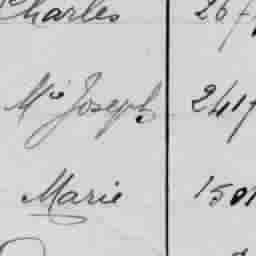 Charles 267
Mie Joseph 2417
Marie 1501